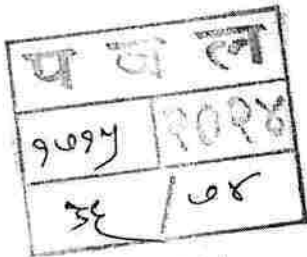 प ज ल
१७१५ २०२४
३६ / ७४